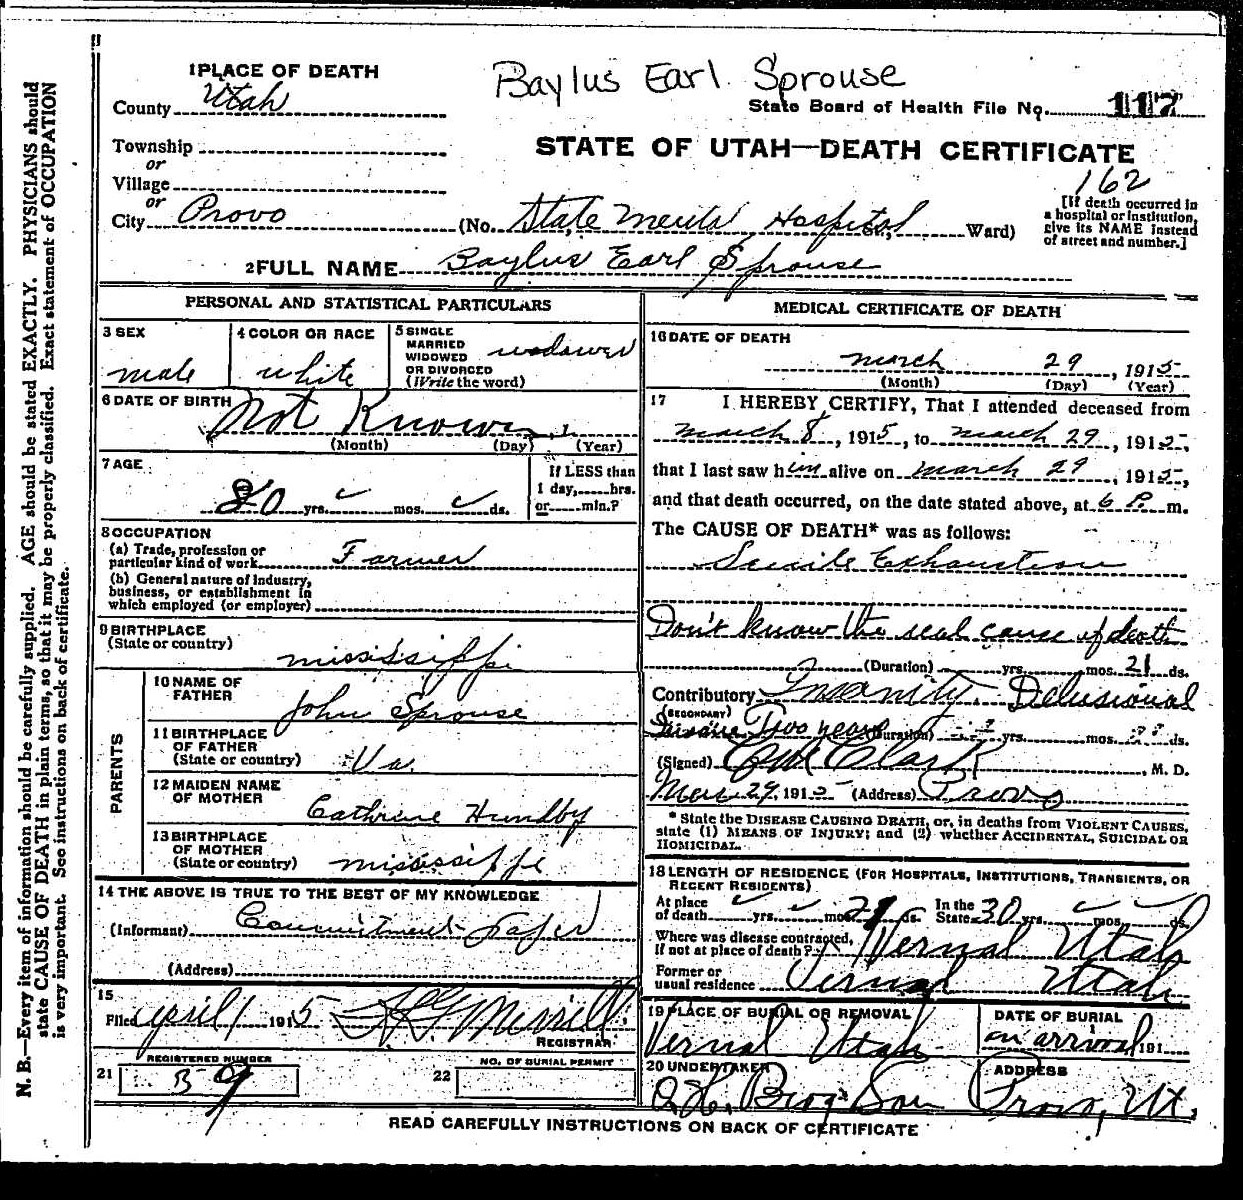 Baylus Earl Sprouse
1 PLACE OF DEATH
County Utah
State Board of Health File No. 117
Township
or
STATE OF UTAH—DEATH CERTIFICATE
162
Village
or
City Provo (No. State Mental Hospital, Ward)
[If death occurred in
a hospital or institution,
give its NAME instead
of street and number.]
2 FULL NAME Baylus Earl Sprouse
PERSONAL AND STATISTICAL PARTICULARS
3 SEX
male
4 COLOR OR RACE
white
5 SINGLE
MARRIED
WIDOWED
OR DIVORCED
(Write the word)
widower
6 DATE OF BIRTH
Not Known, 1
(Month) (Day) (Year)
7 AGE
80 yrs. mos. ds.
If LESS than
1 day, hrs.
or min.?
8 OCCUPATION
(a) Trade, profession or
particular kind of work Farmer
(b) General nature of Industry,
business, or establishment in
which employed (or employer)
9 BIRTHPLACE
(State or country)
mississippi
PARENTS
10 NAME OF
FATHER
John Sprouse
11 BIRTHPLACE
OF FATHER
(State or country) Va.
12 MAIDEN NAME
OF MOTHER
Cathrine Hundby
13 BIRTHPLACE
OF MOTHER
(State or country) mississippi
14 THE ABOVE IS TRUE TO THE BEST OF MY KNOWLEDGE
(Informant) Commitment Paper
(Address)
15
Filed April 1 1915 Merrill
REGISTRAR
REGISTERED NUMBER
21 B 9
NO. OF BURIAL PERMIT
22
MEDICAL CERTIFICATE OF DEATH
16 DATE OF DEATH
march 29, 1915
(Month) (Day) (Year)
17 I HEREBY CERTIFY, That I attended deceased from
march 8, 1915, to march 29, 1915,
that I last saw him alive on march 29, 1915,
and that death occurred, on the date stated above, at 6 P. m.
The CAUSE OF DEATH* was as follows:
Senile Exhaustion
Don't know the real cause of death
(Duration) yrs. mos. 21 ds.
Contributory Insanity, Delusional
(SECONDARY)
Two years (Duration) yrs. mos. ds.
(Signed) Clark, M. D.
Mar 29, 1915 (Address) Provo
* State the DISEASE CAUSING DEATH, or, in deaths from VIOLENT CAUSES,
state (1) MEANS OF INJURY; and (2) whether ACCIDENTAL, SUICIDAL OR
HOMICIDAL.
18 LENGTH OF RESIDENCE (FOR HOSPITALS, INSTITUTIONS, TRANSIENTS, OR
RECENT RESIDENTS)
At place
of death yrs. mos. 21 ds.
In the
State 30 yrs. mos. ds.
Where was disease contracted,
if not at place of death? Vernal Utah
Former or
usual residence Vernal Utah
19 PLACE OF BURIAL OR REMOVAL
Vernal Utah
DATE OF BURIAL
on arrival 191
20 UNDERTAKER
ADDRESS
Provo, Ut.
READ CAREFULLY INSTRUCTIONS ON BACK OF CERTIFICATE
N. B.—Every item of information should be carefully supplied. AGE should be stated EXACTLY. PHYSICIANS should
state CAUSE OF DEATH in plain terms, so that it may be properly classified. Exact statement of OCCUPATION
is very important. See instructions on back of certificate.